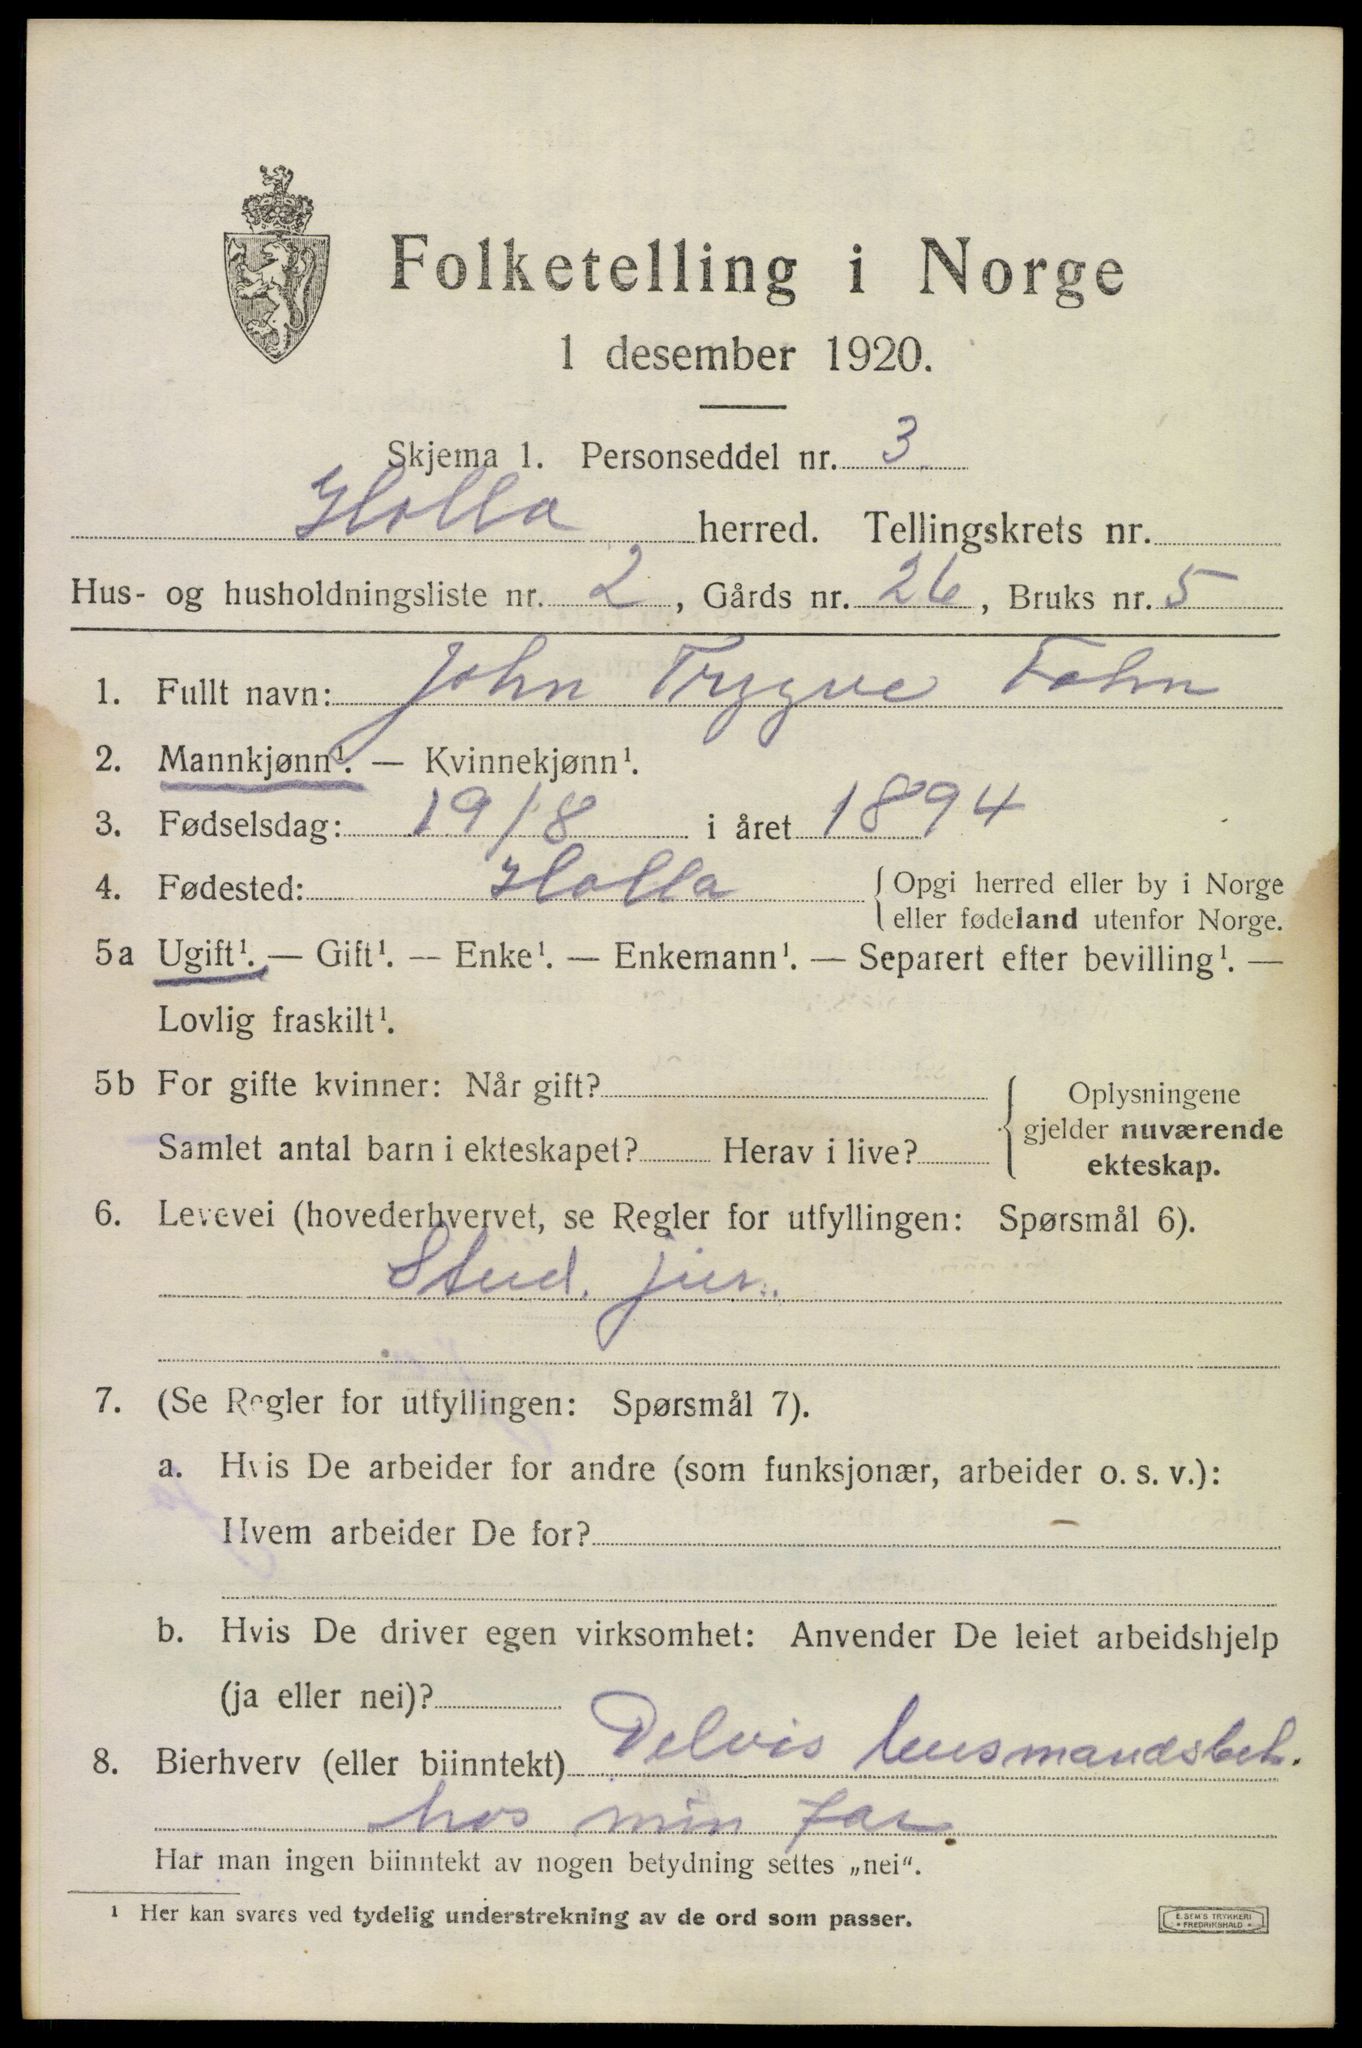 Folketelling i Norge
1 desember 1920.
Skjema 1. Personseddel nr. 3.
Holla herred. Tellingskrets nr.
Hus- og husholdningsliste nr. 2, Gårds nr. 26, Bruks nr. 5
1. Fullt navn: John Trygve Fohn
2. Mannkjønn¹. — Kvinnekjønn¹.
3. Fødselsdag: 19/8 i året 1894
4. Fødested: Holla {Opgi herred eller by i Norge
eller fødeland utenfor Norge.
5a Ugift¹. — Gift¹. — Enke¹. — Enkemann¹. — Separert efter bevilling¹. —
Lovlig fraskilt¹.
5b For gifte kvinner: Når gift?
Samlet antal barn i ekteskapet? Herav i live?
Oplysningene
gjelder nuværende
ekteskap.
6. Levevei (hovederhvervet, se Regler for utfyllingen: Spørsmål 6).
Stud. jur.
7. (Se Regler for utfyllingen: Spørsmål 7).
a. Hvis De arbeider for andre (som funksjonær, arbeider o. s. v.):
Hvem arbeider De for? —
b. Hvis De driver egen virksomhet: Anvender De leiet arbeidshjelp
(ja eller nei)?
8. Bierhverv (eller biinntekt) Delvis lensmandsbet.
hos min far
Har man ingen biinntekt av nogen betydning settes „nei“.
¹ Her kan svares ved tydelig understrekning av de ord som passer.
E. SEM'S TRYKKERI
* FREDRIKSHALD *